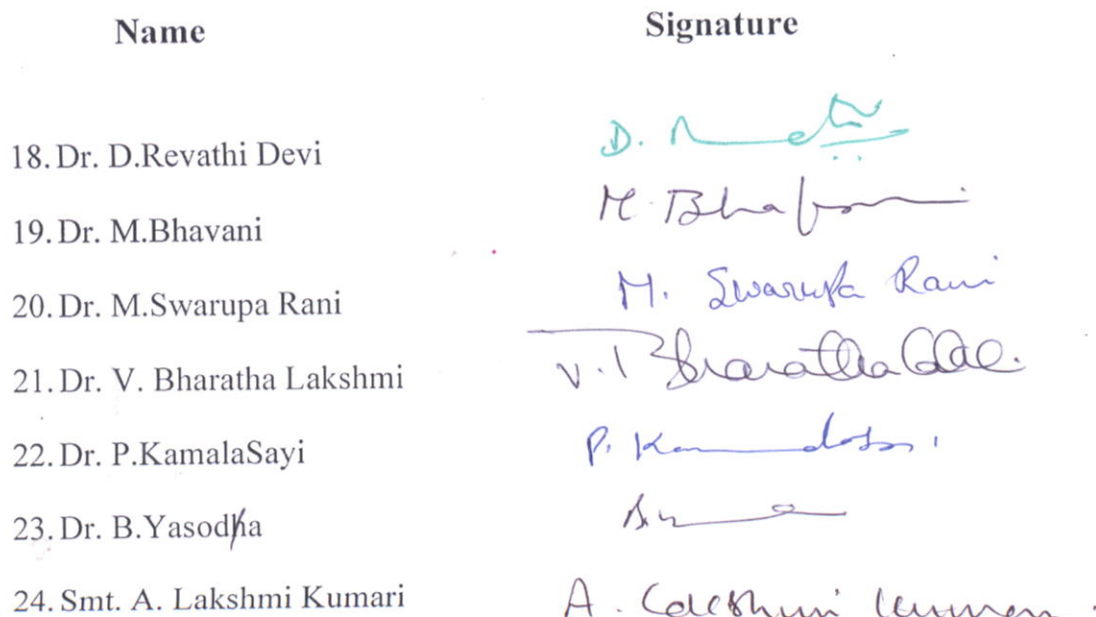 Name Signature
18. Dr. D.Revathi Devi D.
19. Dr. M.Bhavani M. Bhavani
20. Dr. M.Swarupa Rani M. Swarupa Rani
21. Dr. V. Bharatha Lakshmi V. Bharatha
22. Dr. P.KamalaSayi P.
23. Dr. B.Yasodha
24. Smt. A. Lakshmi Kumari A. Lakshmi Kumari